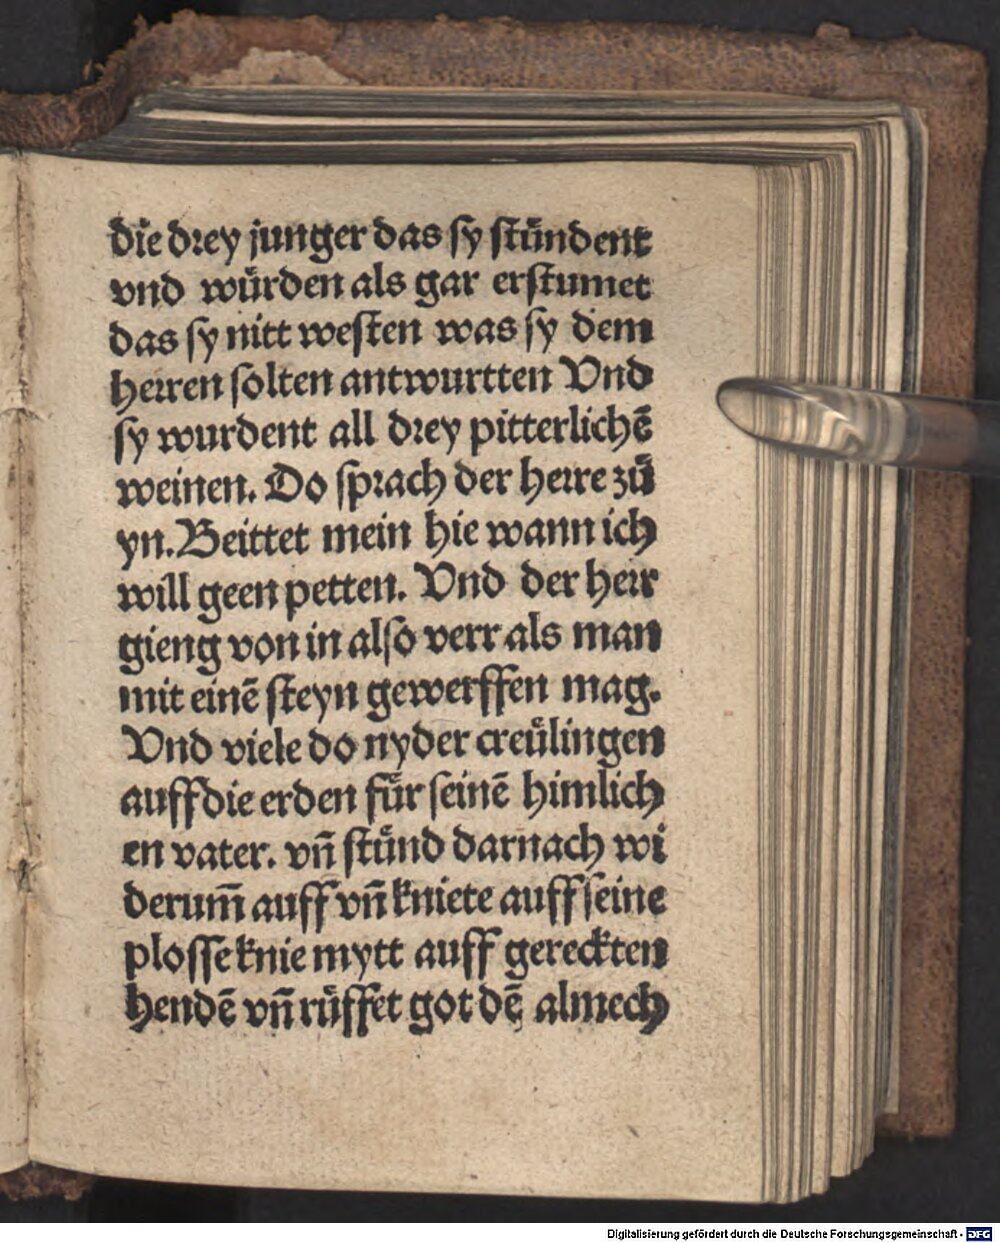 die drey junger das sy stůndent
vnd würden als gar erstumet
das sy nitt westen was sy dem
herren solten antwurtten Vnd
sy wurdent all drey pitterlichē
weinen. Do sprach der herre zů
yn. Beittet mein hie wann ich
will geen petten. Vnd der herr
gieng von in also verr als man
mit einē steyn gewerffen mag.
Vnd viele do nyder creülingen
auff die erden für seinē himlich
en vater. vn̄ stůnd darnach wi
derum̄ auff vn̄ kniete auff seine
plosse knie mytt auff gereckten
hendē vn̄ růffet got dē almech
Digitalisierung gefördert durch die Deutsche Forschungsgemeinschaft - DFG